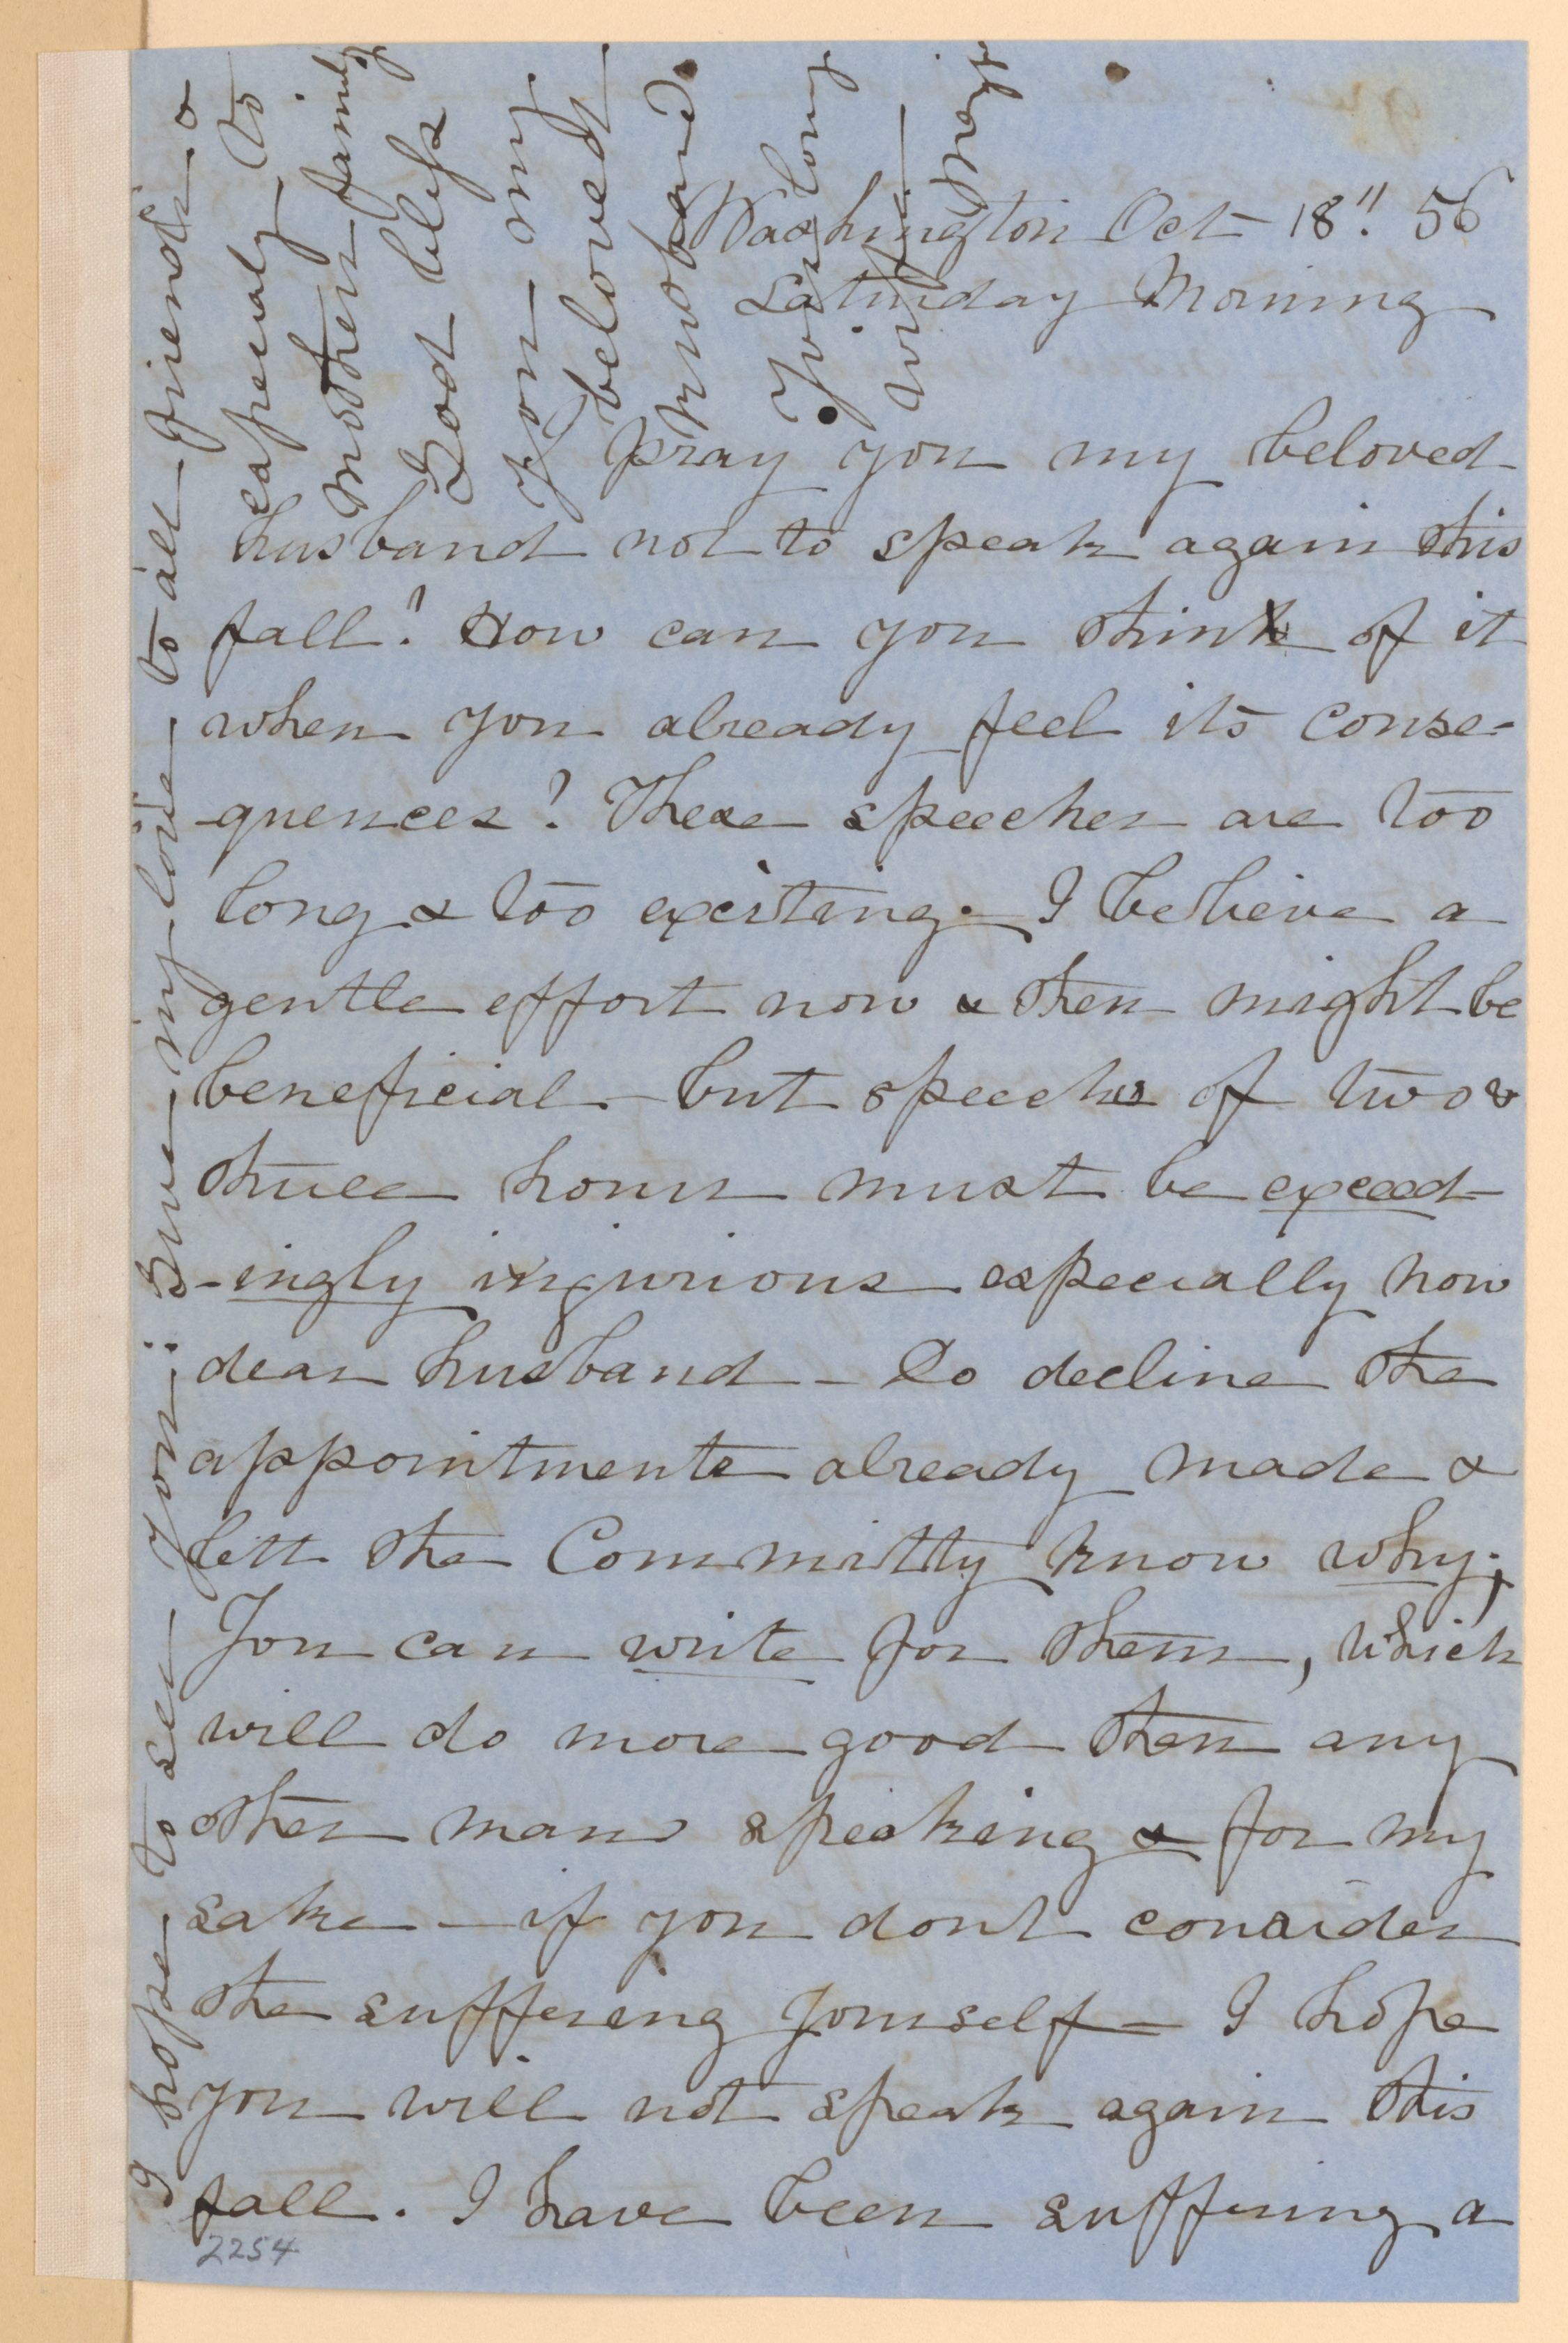 Washington Oct 18" 56
Saturday Morning
I pray you my beloved
husband not to speak again this
fall! How can you think of it
when you already feel its conse-
-quences! These speeches are too
long & too exciting. I believe a
gentle effort now & then might be
beneficial - but speeches of two &
three hours must be exceed-
-ingly injurious especially now
dear husband - Do decline the
appointments already made &
lett the Committy know why;
You can write for them, which
will do more good then any
other mans speaking & for my
sake - if you dont consider
the suffering yourself - I hope
you will not speak again this
fall. I have been suffering a
2254
I hope to see you. Give my love to all friends &
especialy to
Mothers family
God bless
you my
beloved
husband.
Your loving
wife